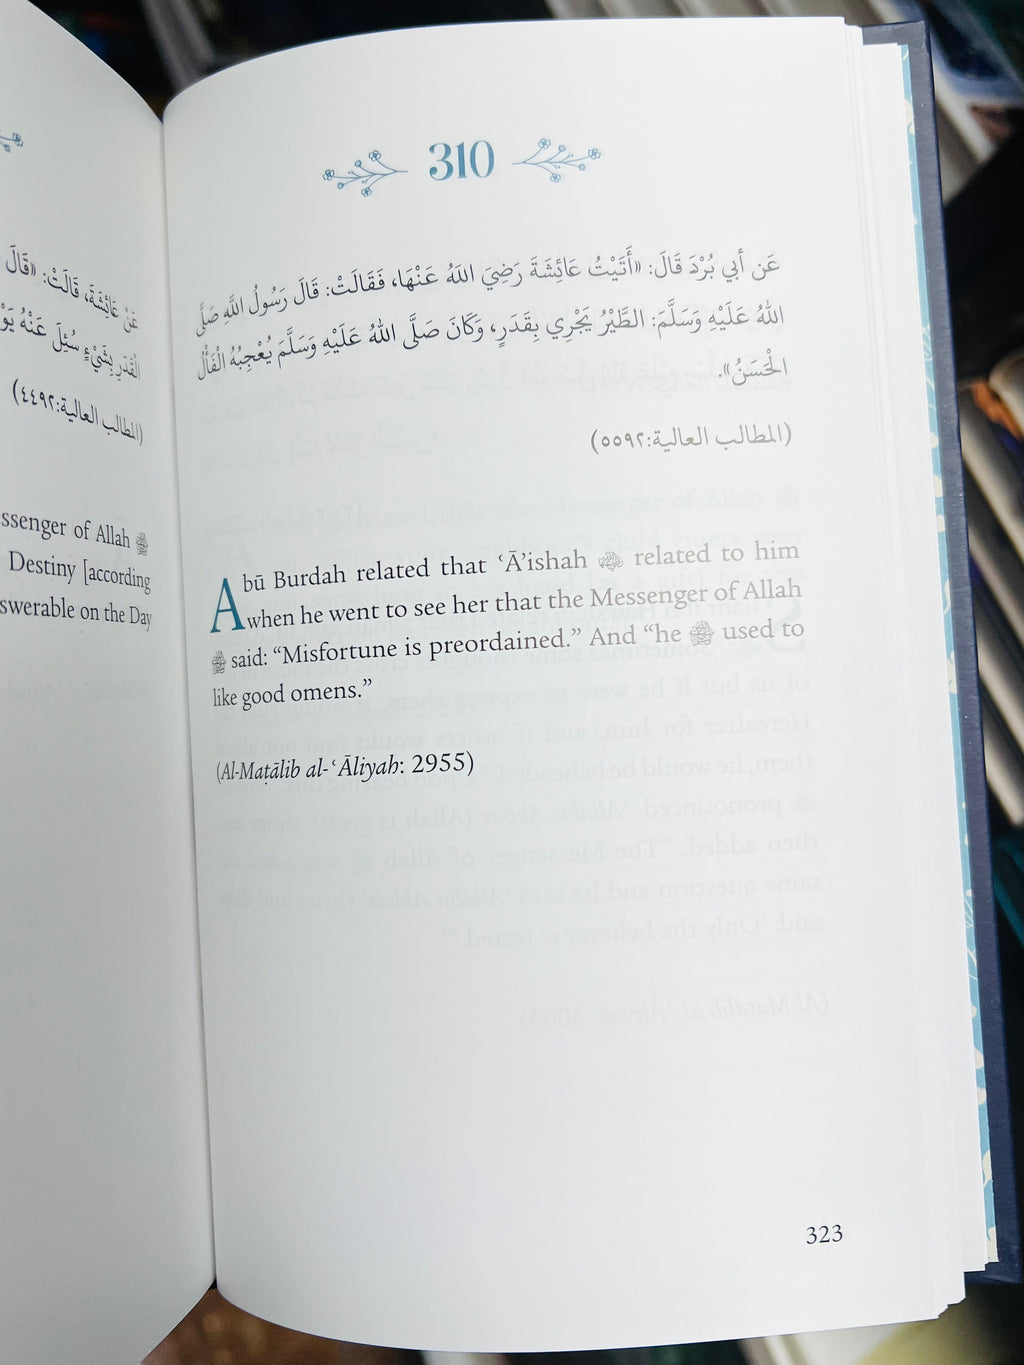 عَنْ عَائِشَةَ، قَالَتْ: «قَالَ
الْقَدَرِ بِشَيْءٍ سُئِلَ عَنْهُ يَوْ
(المطالب العالية:٤٤٩٢)
ssenger of Allah ﷺ
Destiny [according
swerable on the Day
310
عَن أبي بُرْدَ قَالَ: «أَتَيْتُ عَائِشَةَ رَضِيَ اللهُ عَنْهَا، فَقَالَتْ: قَالَ رَسُولُ اللَّهِ صَلَّى
اللهُ عَلَيْهِ وَسَلَّمَ: الطَّيْرُ يَجْرِي بِقَدَرٍ، وَكَانَ صَلَّى اللهُ عَلَيْهِ وَسَلَّمَ يُعْجِبُهُ الْفَأْلُ
الْحَسَنُ».
(المطالب العالية:٥٥٩٢)
Abū Burdah related that ʿĀ’ishah related to him
when he went to see her that the Messenger of Allah
ﷺ said: “Misfortune is preordained.” And “he ﷺ used to
like good omens.”
(Al-Maṭālib al-ʿĀliyah: 2955)
323